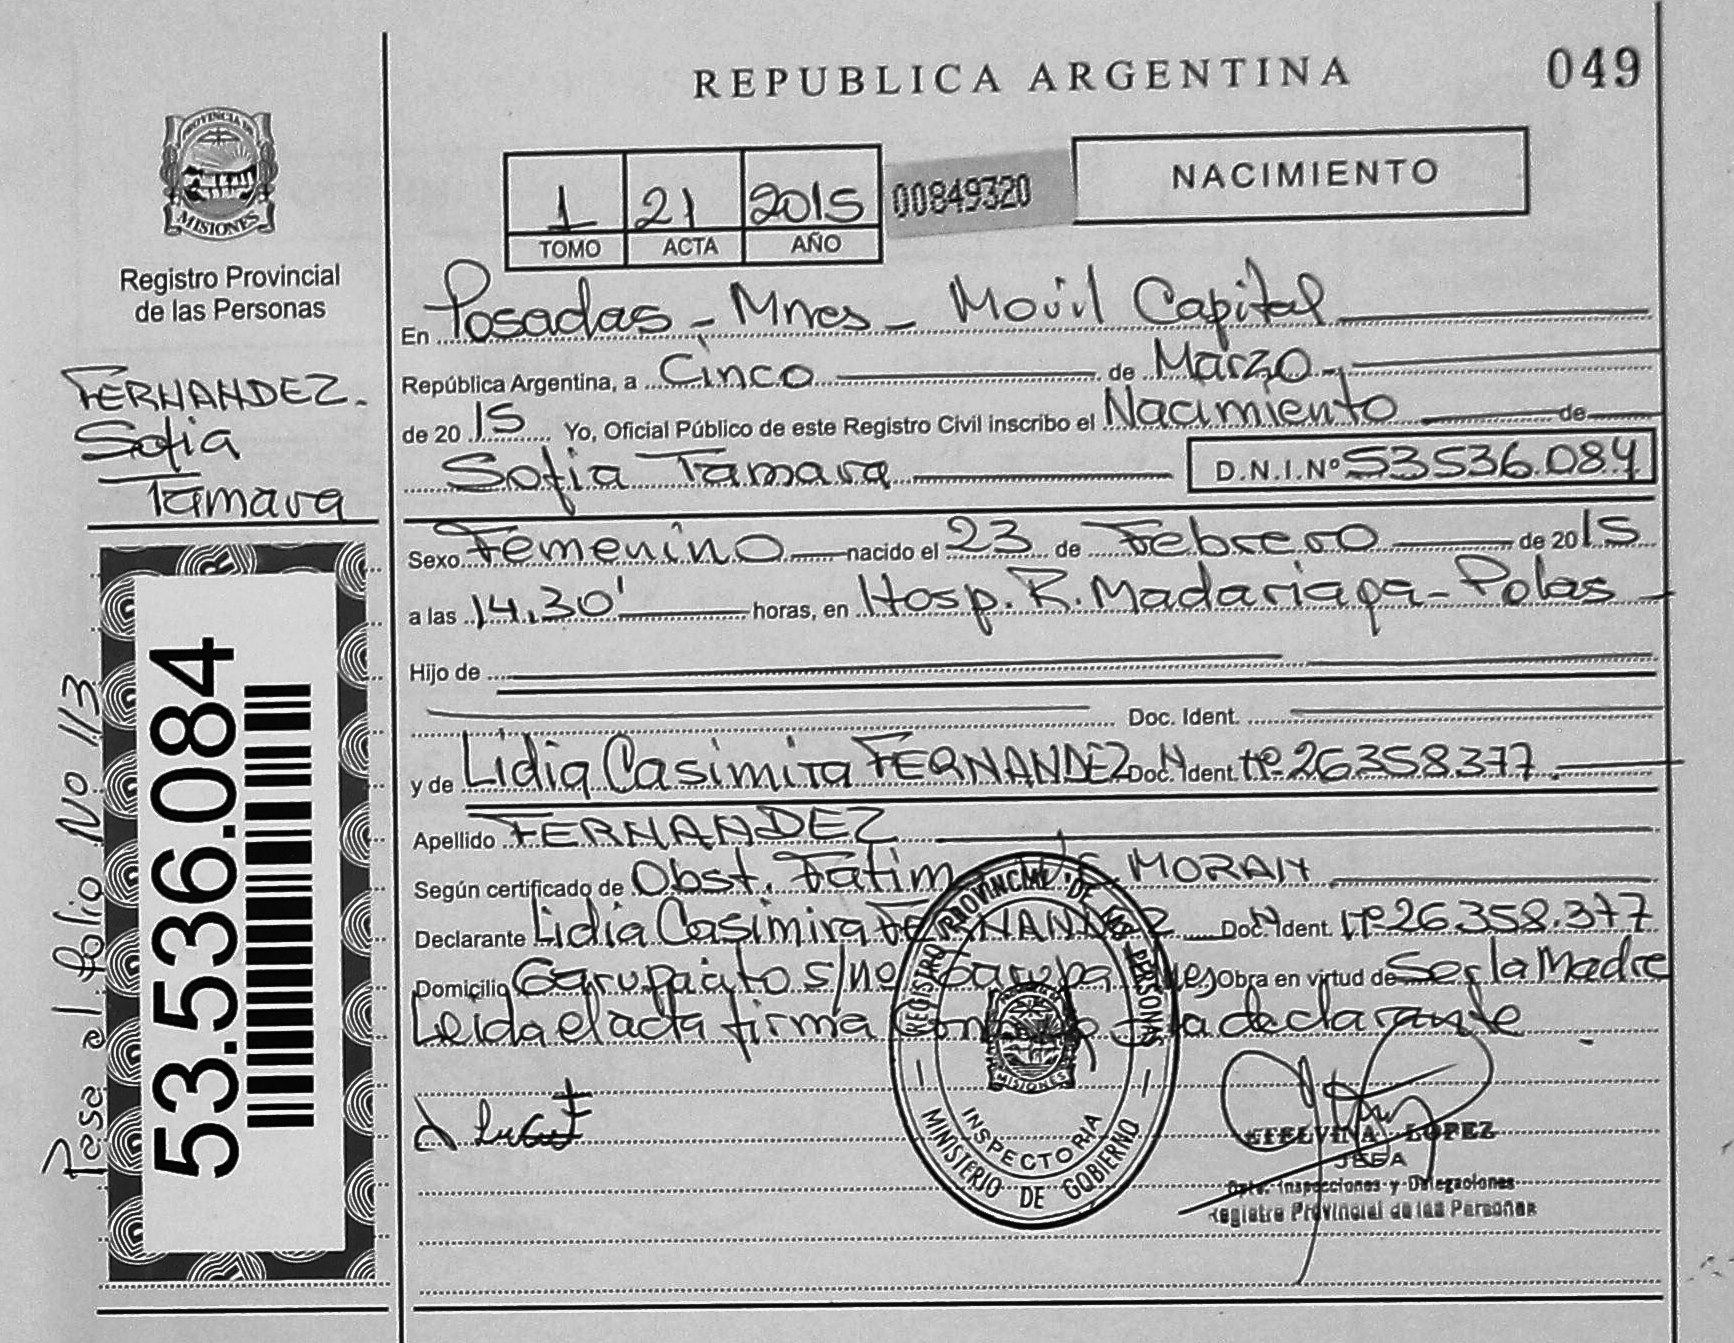 REPUBLICA ARGENTINA
049
PROVINCIA DE
MISIONES
Registro Provincial
de las Personas
1 21 2015
TOMO ACTA AÑO
00849320
NACIMIENTO
FERNANDEZ.
Sofia
Tamara
En Posadas - Mnes - Movil Capital
República Argentina, a Cinco de Marzo
de 2015 Yo, Oficial Público de este Registro Civil inscribo el Nacimiento de
Sofia Tamara D.N.I.Nº 53536.084
Sexo Femenino nacido el 23 de Febrero de 2015
a las 14.30' horas, en Hosp. R. Madariaga - Pdas
Hijo de
Doc. Ident.
y de Lidia Casimira FERNANDEZ Doc. Ident. Nº 26.358.377.
Apellido FERNANDEZ
Según certificado de Obst. Fatim MORAN
Declarante Lidia Casimira FERNANDEZ Doc. Ident. Nº 26.358.377
Domicilio Garupacito s/nº Garupa Mnes Obra en virtud de Ser la Madre
Leida el acta firma la declarante
53.536.084
Pase al folio Nº 113
REGISTRO PROVINCIAL DE LAS PERSONAS
MISIONES
INSPECTORIA
MINISTERIO DE GOBIERNO
ETELVINA LOPEZ
JEFA
Dpto. Inspecciones y Delegaciones
Registro Provincial de las Personas